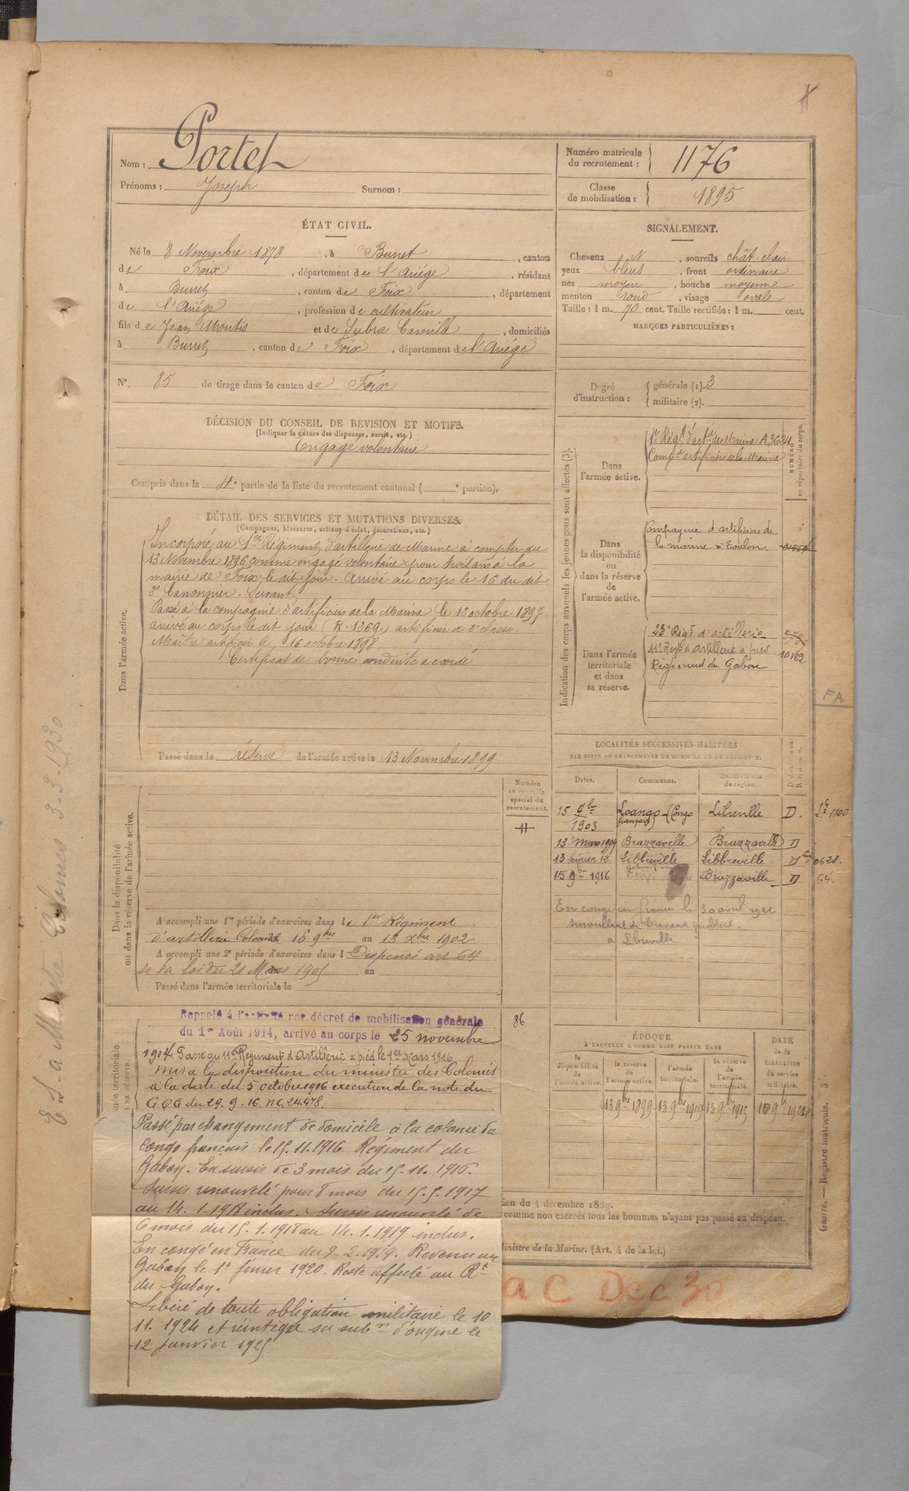 Nom : Portet
Prénoms : Joseph Surnom :
Numéro matricule du recrutement : 1176
Classe de mobilisation : 1895
ÉTAT CIVIL.
Né le 8 Novembre 1878, à Burret, canton
de Foix, département de l'Ariège, résidant
à Burret, canton de Foix, département
de l'Ariège, profession de cultivateur
fils de Jean et de Subra Camille, domiciliés
à Burret, canton de Foix, département de l'Ariège
N° 85 de tirage dans le canton de Foix
SIGNALEMENT.
Cheveux, sourcils chât clair
yeux bleus, front ordinaire
nez moyen, bouche moyenne
menton rond, visage ovale
Taille : 1 m. 70 cent. Taille rectifiée : 1 m. cent.
MARQUES PARTICULIÈRES :
Degré d'instruction : générale (1). 3
militaire (2).
DÉCISION DU CONSEIL DE REVISION ET MOTIFS.
(Indiquer la nature des dispenses, sursis, etc.)
Engagé volontaire
Compris dans la 4e partie de la liste du recrutement cantonal ( e portion).
DÉTAIL DES SERVICES ET MUTATIONS DIVERSES.
(Campagnes, blessures, actions d'éclat, décorations, etc.)
Dans l'armée active.
Incorporé au 1er Régiment d'artillerie de Marine à compter du
13 Novembre 1896 comme engagé volontaire pour trois ans à la
mairie de Foix le dit jour. Arrivé au corps le 16 du dit
2e Canonnier Servant
Passé à la compagnie d'artificiers de la Marine le 13 octobre 1897
arrivé au corps le dit jour (R. 1369) artificier de 2e classe
Maître artificier le 16 octobre 1898
Certificat de bonne conduite accordé
Passé dans la réserve de l'armée active le 13 Novembre 1899
Indication des corps auxquels les jeunes gens sont affectés (3).
Dans l'armée active.
1er Régt d'artie de Marine A 3624
Compie artificiers de la Marine
Dans la disponibilité ou dans la réserve de l'armée active.
Compagnie d'artificiers de
la marine à Toulon
Dans l'armée territoriale et dans sa réserve.
23e Régt d'artillerie
11e Régt d'artillerie à pied 10162
Régiment du Gabon
FA
LOCALITÉS SUCCESSIVES HABITÉES
PAR SUITE DE CHANGEMENT DE DOMICILE OU DE RÉSIDENCE.
Dates. Communes. Subdivisions de région.
15 9bre 1903 Loango (Congo français) Libreville D.
13 mars 1909 Brazzaville Brazzaville D
13 février 12 Libreville Libreville D
15 9bre 1916 Brazzaville D
En congé en France le 30 avril
surveillant de travaux publics
à Libreville
Dans la disponibilité ou dans la réserve de l'armée active.
Numéro au contrôle spécial du recrutement.
A accompli une 1re période d'exercices dans le 1er Régiment
d'artillerie Coloniale 15 9bre au 13 Xbre 1902
A accompli une 2e période d'exercices dans l Dispensé art 64
de la loi du 21 Mars 1905 au
Passé dans l'armée territoriale le
Rappelé à l'activité par décret de mobilisation générale
du 1er Août 1914, arrivé au corps le 25 novembre
1914. Passé au 11e Régiment d'Artillerie à pied le 1er Mars 1916
Mis à la disposition du ministre des Colonies
à la date du 5 octobre 1916 exécution de la note du
G.Q.G du 29.9.16. N° 24478.
86
Passé par changement de domicile à la colonie du
Congo français le 15.11.1916 Régiment du
Gabon. En sursis de 3 mois du 15.11.1916.
Sursis renouvelé pour 8 mois du 15.5.1917
au 14.1.1918 inclus. Sursis renouvelé de
6 mois du 15.1.1918 au 14.1.1919 inclus.
En congé en France du 8-2-1919. Revenu au
Gabon le 1er février 1920. Reste affecté au Rt
du Gabon.
Libéré de toute obligation militaire le 10
11.1924 et réintègre sa subon d'origine le
12 janvier 1925
ÉPOQUE
À LAQUELLE L'HOMME DOIT PASSER DANS
la disponibilité de l'armée active. la réserve de l'armée active. l'armée territoriale. la réserve de l'armée territoriale.
DATE de la libération du service militaire.
13 9bre 1899 13 9bre 13 9bre 1915 10 9bre
comme non exercés tous les hommes n'ayant pas passé au drapeau.
Ministre de la Marine. (Art. 4 de la loi.)
Guerre. — Registre matricule. 3.
a C Dec 30
3-3-1930